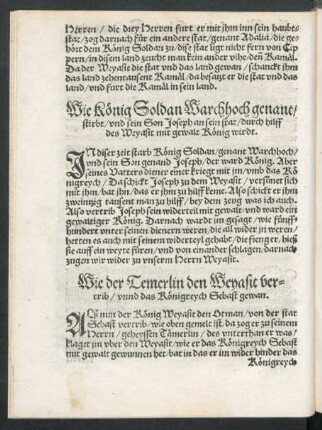 Herren / die drey Herren fürt er mit jhm inn sein haubt
stat / zog darnach für ein andere stat / genant Adalia / die ge-
hört dem König Soldan zu / dise stat ligt nicht fern von Cip
pern / in disem land zeucht man kein ander vihe / den Kamäl.
Da der Weyasit die stat vnd das land gewan / schanckt jhm
das land zehentausent Kamäl / da besatzt er die stat vnd das
land / vnd fürt die Kamäl in sein land.
Wie König Soldan Warchhoch genant /
stirbt / vnd sein Son Joseph an sein stat / durch hilff
des Weyasit mit gewalt König wirdt.
IN diser zeit starb König Soldan / genant Warchhoch /
vnd sein Son genand Joseph / der ward König. Aber
seines Vatters diener einer kriegt mit jm / vmb das Kö
nigreych / Da schickt Joseph zu dem Weyasit / versünet sich
mit jhm / bat jhn / das er jhm zu hilff keme. Also schickt er jhm
zweintzig tausent man zu hilff / bey dem zeug was ich auch.
Also vertrib Joseph sein widerteil mit gewalt / vnd ward ein
gewaltiger König. Darnach wardt jm gesagt / wie fünff
hundert vnter seinen dienern weren / die all wider jn weren /
hetten es auch mit seinem widerteyl gehabt / die fienger / hieß
sie auff ein weyte füren / vnd von einander schlagen / darnach
zugen wir wider zu vnsern Herrn Weyasit.
Wie der Temerlin den Weyasit ver-
trib / vnnd das Königreych Sebast gewan.
ALs nun der König Weyasit den Otman / von der stat
Sebast vertrib / wie oben gemelt ist / da zog er zu seinem
Herrn / geheyssen Tämerlin / des vnterthan er was /
klaget jm vber den Weyasit / wie er das Königreych Sebast
mit gewalt gewunnen het / bat in das er im wider hinder das
Königreych